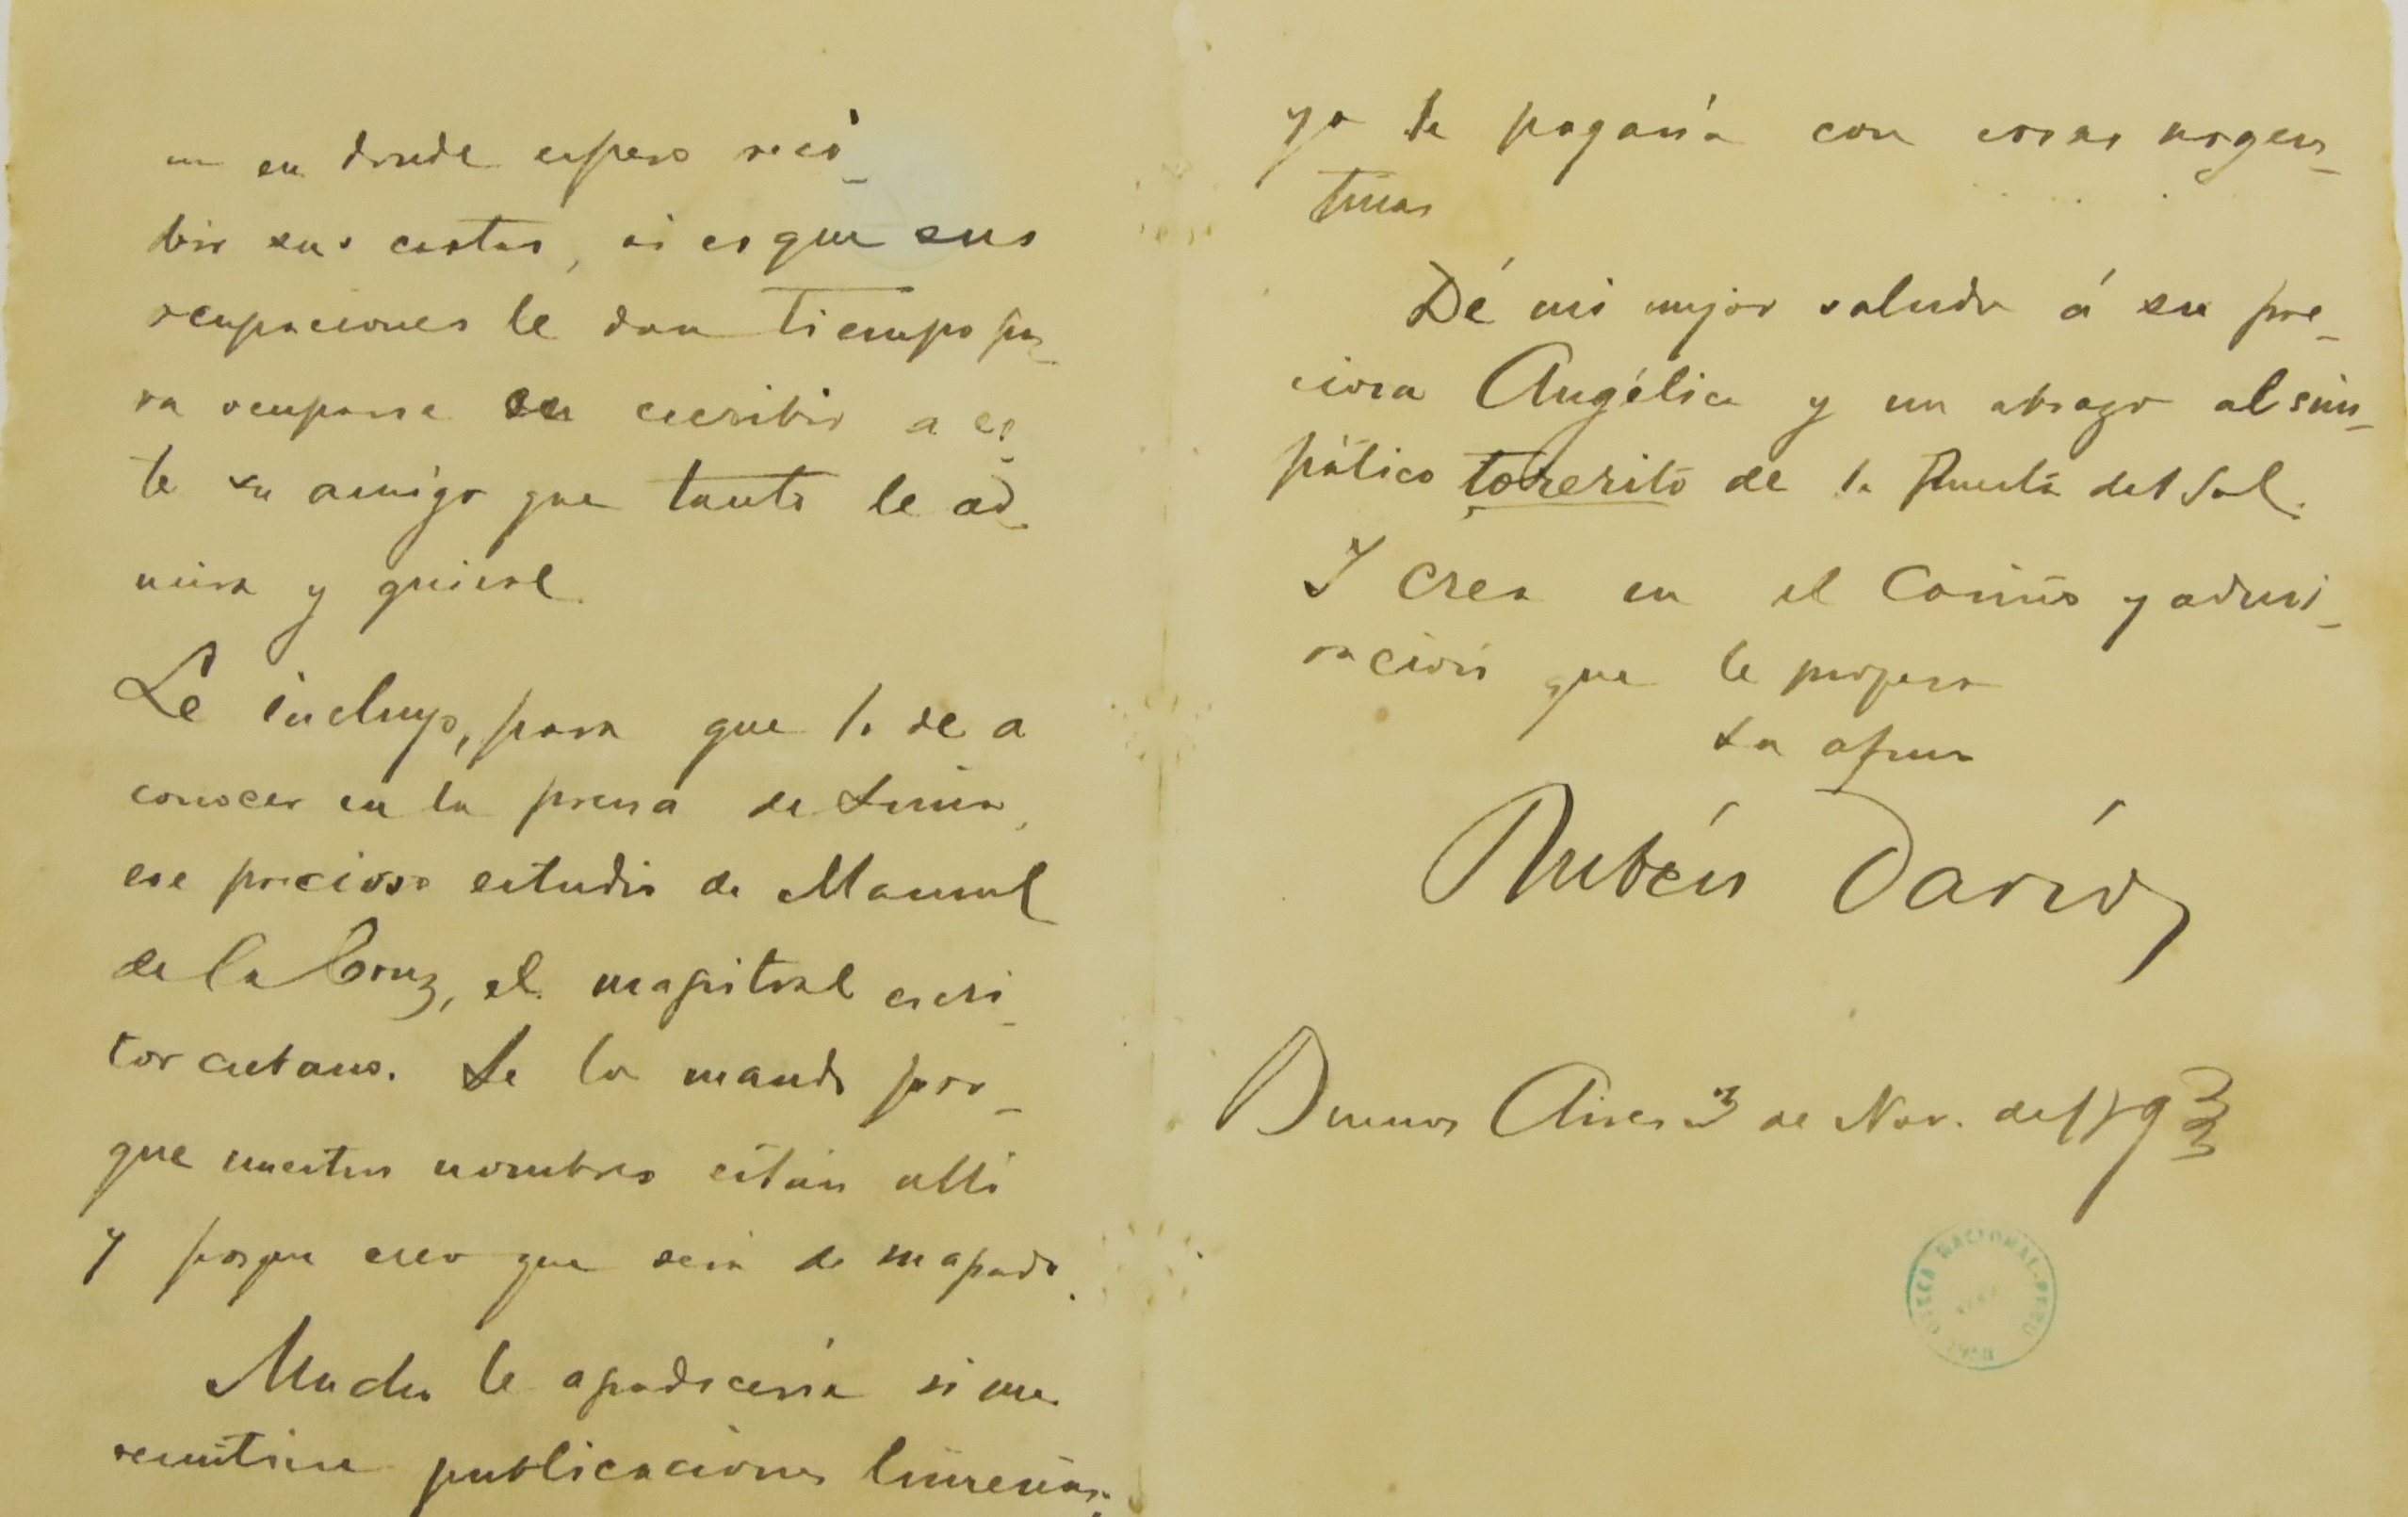 en donde espero reci-
bir sus cartas, si es que sus
ocupaciones le dan tiempo pa-
ra ocuparse en escribir a es-
te su amigo que tanto le ad-
mira y quiere
Le incluyo, para que lo dé a
conocer en la prensa de Lima,
ese precioso estudio de Manuel
de la Cruz, el magistral escri-
tor cubano. Se lo mando por-
que nuestros nombres están allí
y porque creo que será de su agrado.
Mucho le agradecería si me
remitiera publicaciones limeñas;
yo le pagaría con cosas argen-
tinas
Dé mi mejor saludo á su pre-
ciosa Angélica y un abrazo al sim-
pático torerito de la Puerta del Sol.
Y crea en el cariño y admi-
ración que le profesa
Su afmo
Rubén Darío
Buenos Aires 3 de Nov. de 1893
BIBLIOTECA NACIONAL-PERU